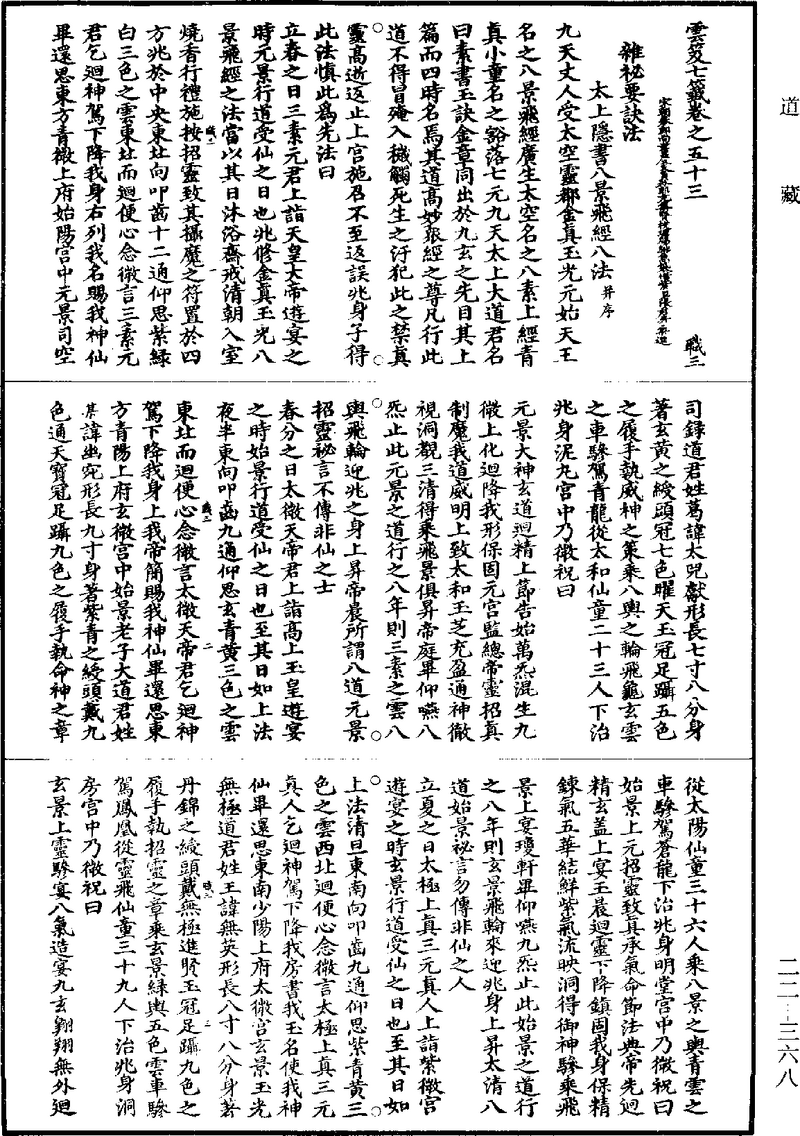 道藏
二二—三六八
雲笈七籤卷之五十三
職三
雜祕要訣法
太上隱書八景飛經八法并序
九天丈人受太空靈都金真玉光元始天王
名之八景飛經廣生太空名之八素上經青
真小童名之豁落七元九天太上大道君名
曰素書玉訣金章同出於九玄之先目其上
篇而四時名焉其道高妙衆經之尊凡行此
道不得冒殗入穢觸死生之汙犯此之禁真
靈高逝返止上宮施召不至返誤兆身子得
此法慎此爲先法曰
立春之日三素元君上詣天皇大帝遊宴之
時元景行道受仙之日也兆修金真玉光八
景飛經之法當以其日沐浴齋戒清朝入室
燒香行禮施按招靈致其攝魔之符置於四
方兆於中央東北向叩齒十二通仰思紫綠
白三色之雲東北而迴便心念微言三素元
君乞迴神駕下降我身右列我名賜我神仙
畢還思東方青微上府始陽宮中元景司空
司錄道君姓葛諱太兒獻形長七寸八分身
著玄黃之綬頭冠七色曜天玉冠足躡五色
之履手執威神之策乘八輿之輪飛龜玄雲
之車驂駕青龍從太和仙童二十三人下治
兆身泥丸宮中乃微祝曰
元景大神玄道迴精上節告始萬炁混生九
微上化迴降我形保固元宮監總帝靈招真
制魔我道威明上致太和玉芝充盈通神徹
視洞觀三清得乘飛景俱昇帝庭畢仰嚥八
炁止此元景之道行之八年則三素之雲八
輿飛輪迎兆之身上昇帝晨所謂八道元景
招靈祕言不傳非仙之士
春分之日太微天帝君上詣高上玉皇遊宴
之時始景行道受仙之日也至其日如上法
夜半東向叩齒九通仰思玄青黃三色之雲
東北而迴便心念微言太微天帝君乞迴神
駕下降我身上我帝簡賜我神仙畢還思東
方青陽上府玄微宮中始景老子大道君姓
某諱幽寃形長九寸身著紫青之綬頭戴九
色通天寶冠足躡九色之履手執命神之章
從太陽仙童三十六人乘八景之輿青雲之
車驂駕蒼龍下治兆身明堂宮中乃微祝曰
始景上元招靈致真承氣命節法典帝先迴
精玄蓋上宴玉晨迴靈下降鎮固我身保精
鍊氣五華結鮮紫氣流映洞得御神驂乘飛
景上宴瓊軒畢仰嚥九炁止此始景之道行
之八年則玄景飛輪來迎兆身上昇太清八
道始景祕言勿傳非仙之人
立夏之日太極上真三元真人上詣紫微宮
遊宴之時玄景行道受仙之日也至其日如
上法清旦東南向叩齒九通仰思紫青黃三
色之雲西北迴便心念微言太極上真三元
真人乞迴神駕下降我房書我玉名使我神
仙畢還思東南少陽上府太微宮玄景玉光
無極道君姓王諱無英形長八寸八分身著
丹錦之綬頭戴無極進賢玉冠足躡九色之
履手執招靈之章乘玄景綠輿五色雲車驂
駕鳳凰從靈飛仙童三十九人下治兆身洞
房宮中乃微祝曰
玄景上靈驂宴八氣造宴九玄翱翔無外迴